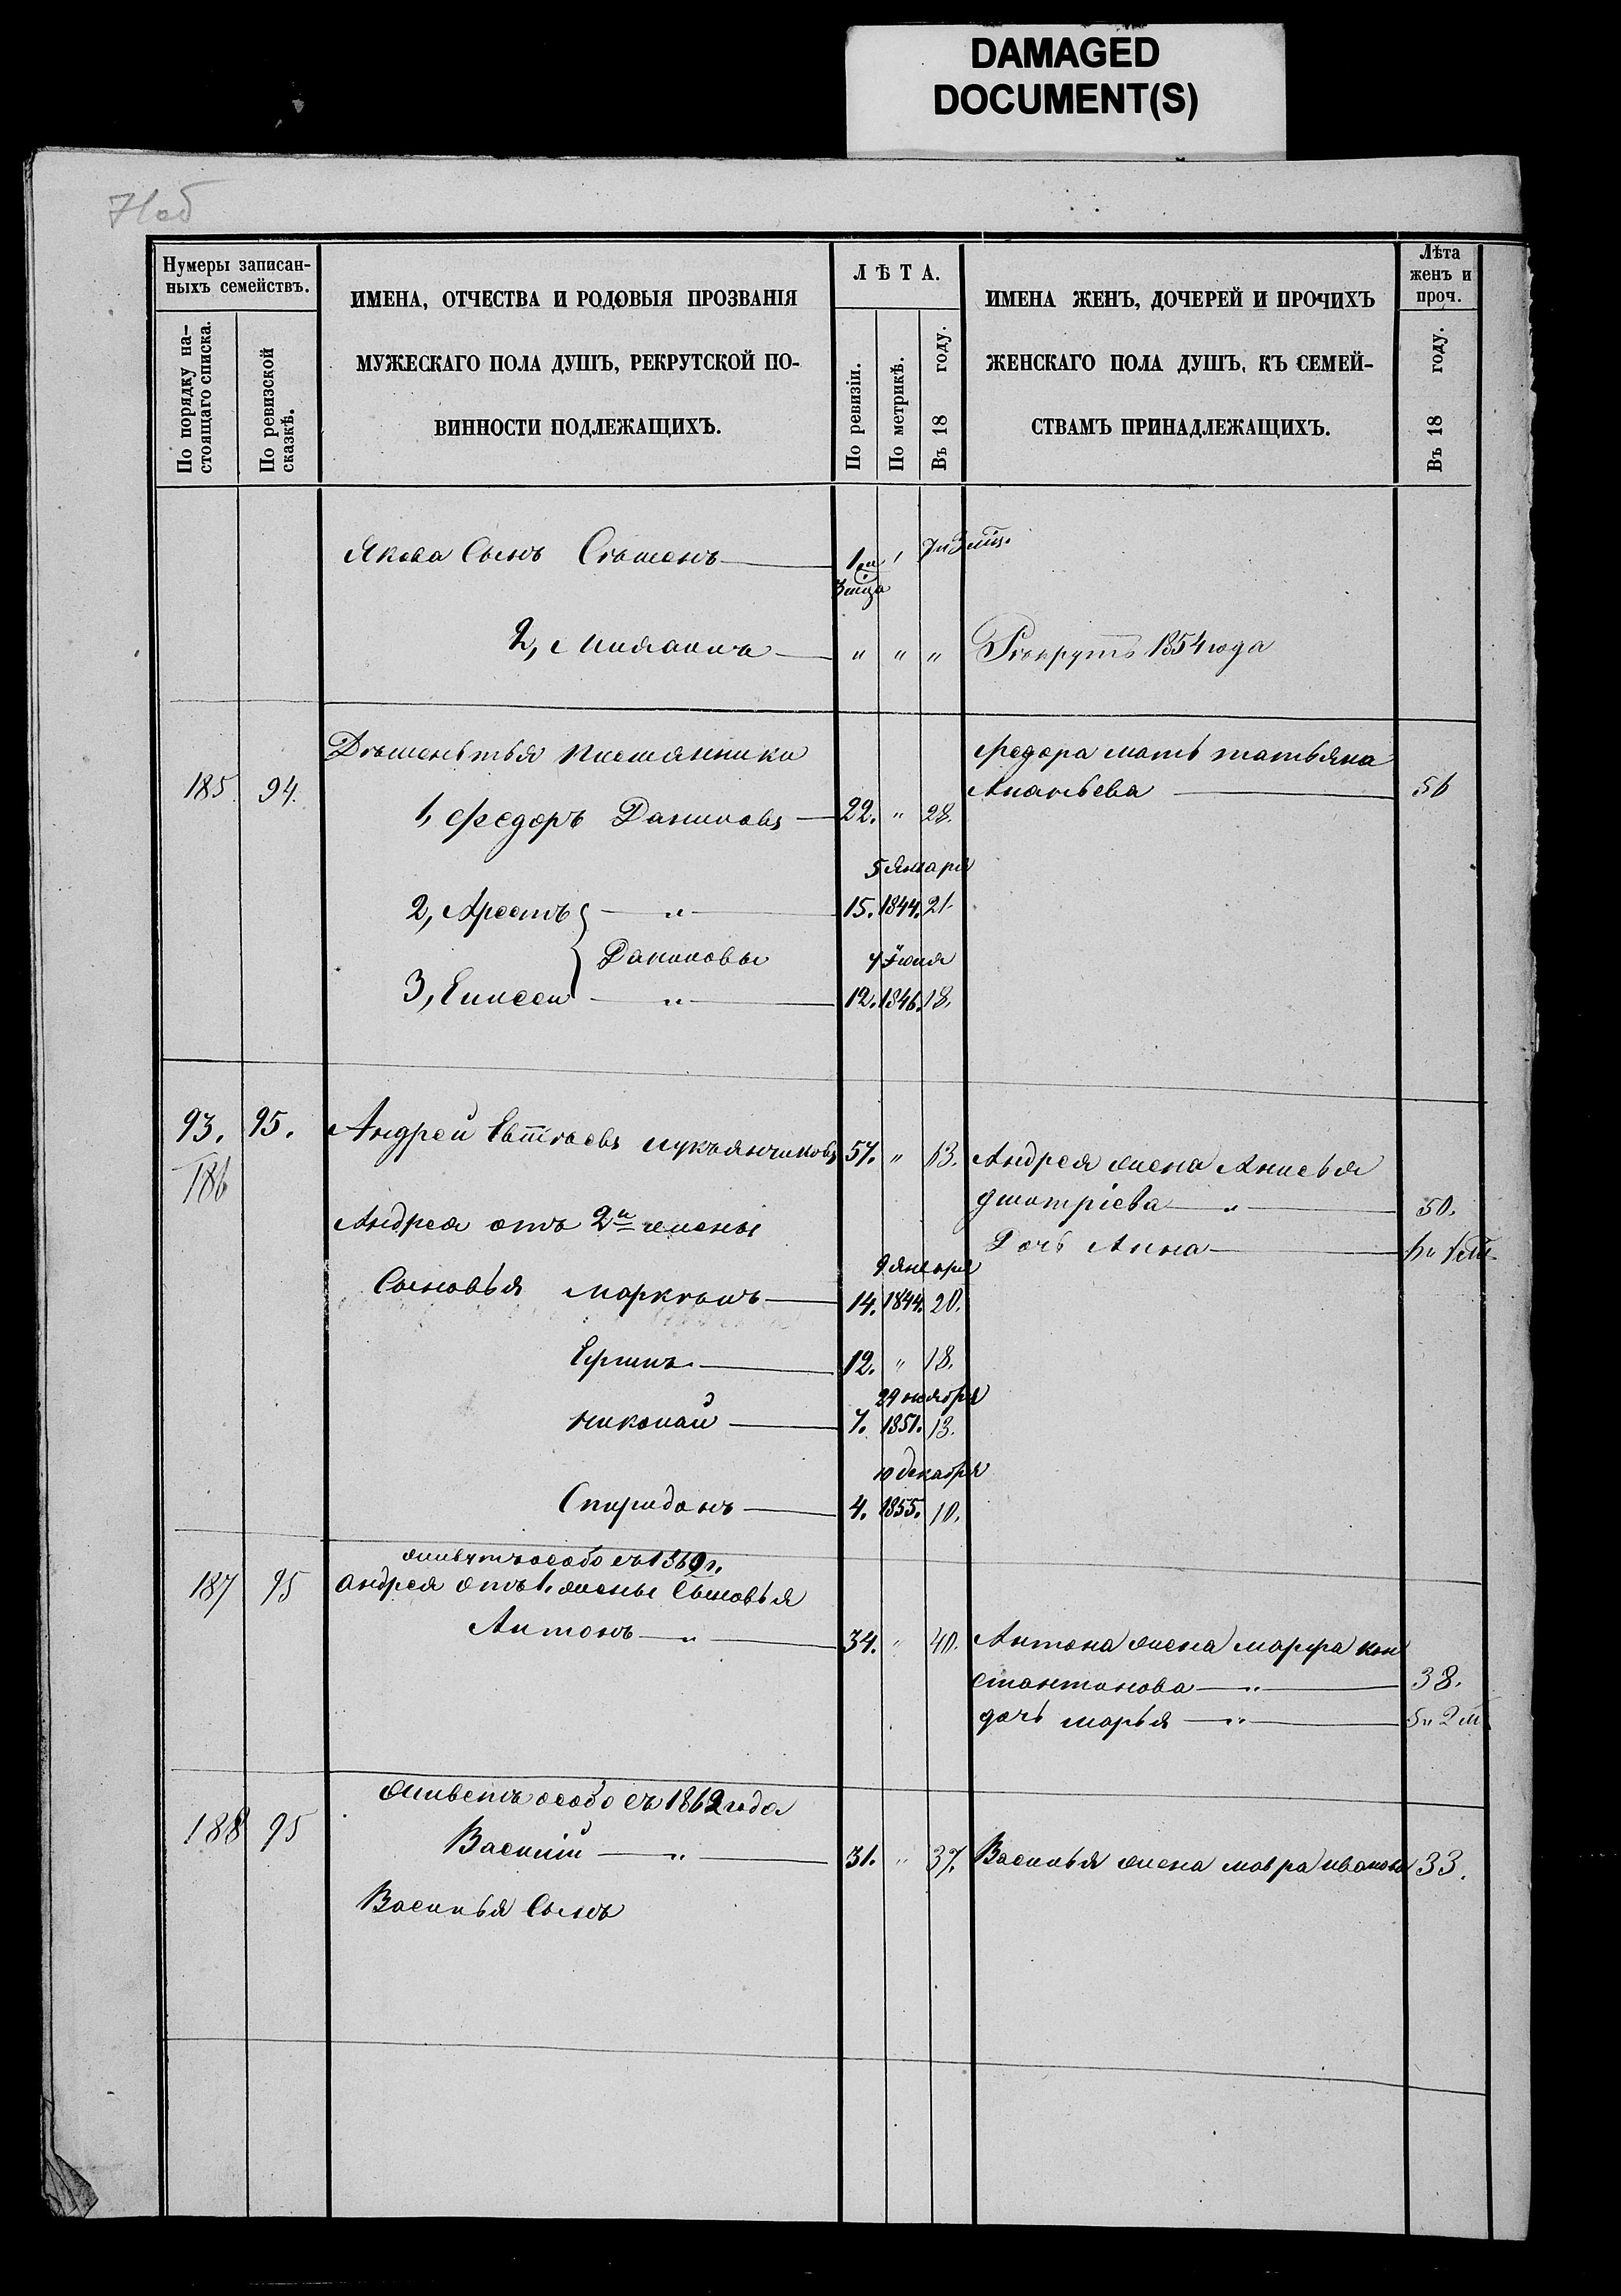 DAMAGED
DOCUMENT(S)
71об
Нумеры записан-
ныхъ семействъ.
По порядку на-
стоящаго списка.
По ревизской
сказкѣ.
ИМЕНА, ОТЧЕСТВА И РОДОВЫЯ ПРОЗВАНІЯ
МУЖЕСКАГО ПОЛА ДУШЪ, РЕКРУТСКОЙ ПО-
ВИННОСТИ ПОДЛЕЖАЩИХЪ.
ЛѢТА.
По ревизіи.
По метрикѣ.
Въ 18 году.
ИМЕНА ЖЕНЪ, ДОЧЕРЕЙ И ПРОЧИХЪ
ЖЕНСКАГО ПОЛА ДУШЪ, КЪ СЕМЕЙ-
СТВАМЪ ПРИНАДЛЕЖАЩИХЪ.
Лѣта
женъ и
проч.
Въ 18 году.
Якова Сынъ 1 и " 7 и 3 мѣц.
3 мца
2, " " " Рекрутъ 1854 года
племянники Федора мать татьяна
185 94. 56
1, Федоръ Даниловъ 22. " 28.
5 Января
2, Арестъ " 15. 1844. 21.
Даниловы Іюня
3, Елисей " 12. 1846. 18.
93. 95. Андрей лукьянчиковъ 57. " 63. Андрея жена Анисья
186 дмитріева " 50.
Андрея отъ 2й жены
Дочь Анна
9 января
Сыновья 14. 1844. 20.
Ефимъ 12. " 18.
29 ноября
николай 7. 1851. 13.
10 декабря
Спиридонъ 4. 1855. 10.
живутъ особо съ г.
187 95 Андрея отъ 1. жены Сыновья
Антонъ " 34. " 40. Антона жена марфа кон
стантинова " 38.
дочь марья " 5 и 2 м
живетъ особо съ 1862 года
188 95
Василій " 31. " 37. Василья жена мавра иванова 33.
Василья Сынъ